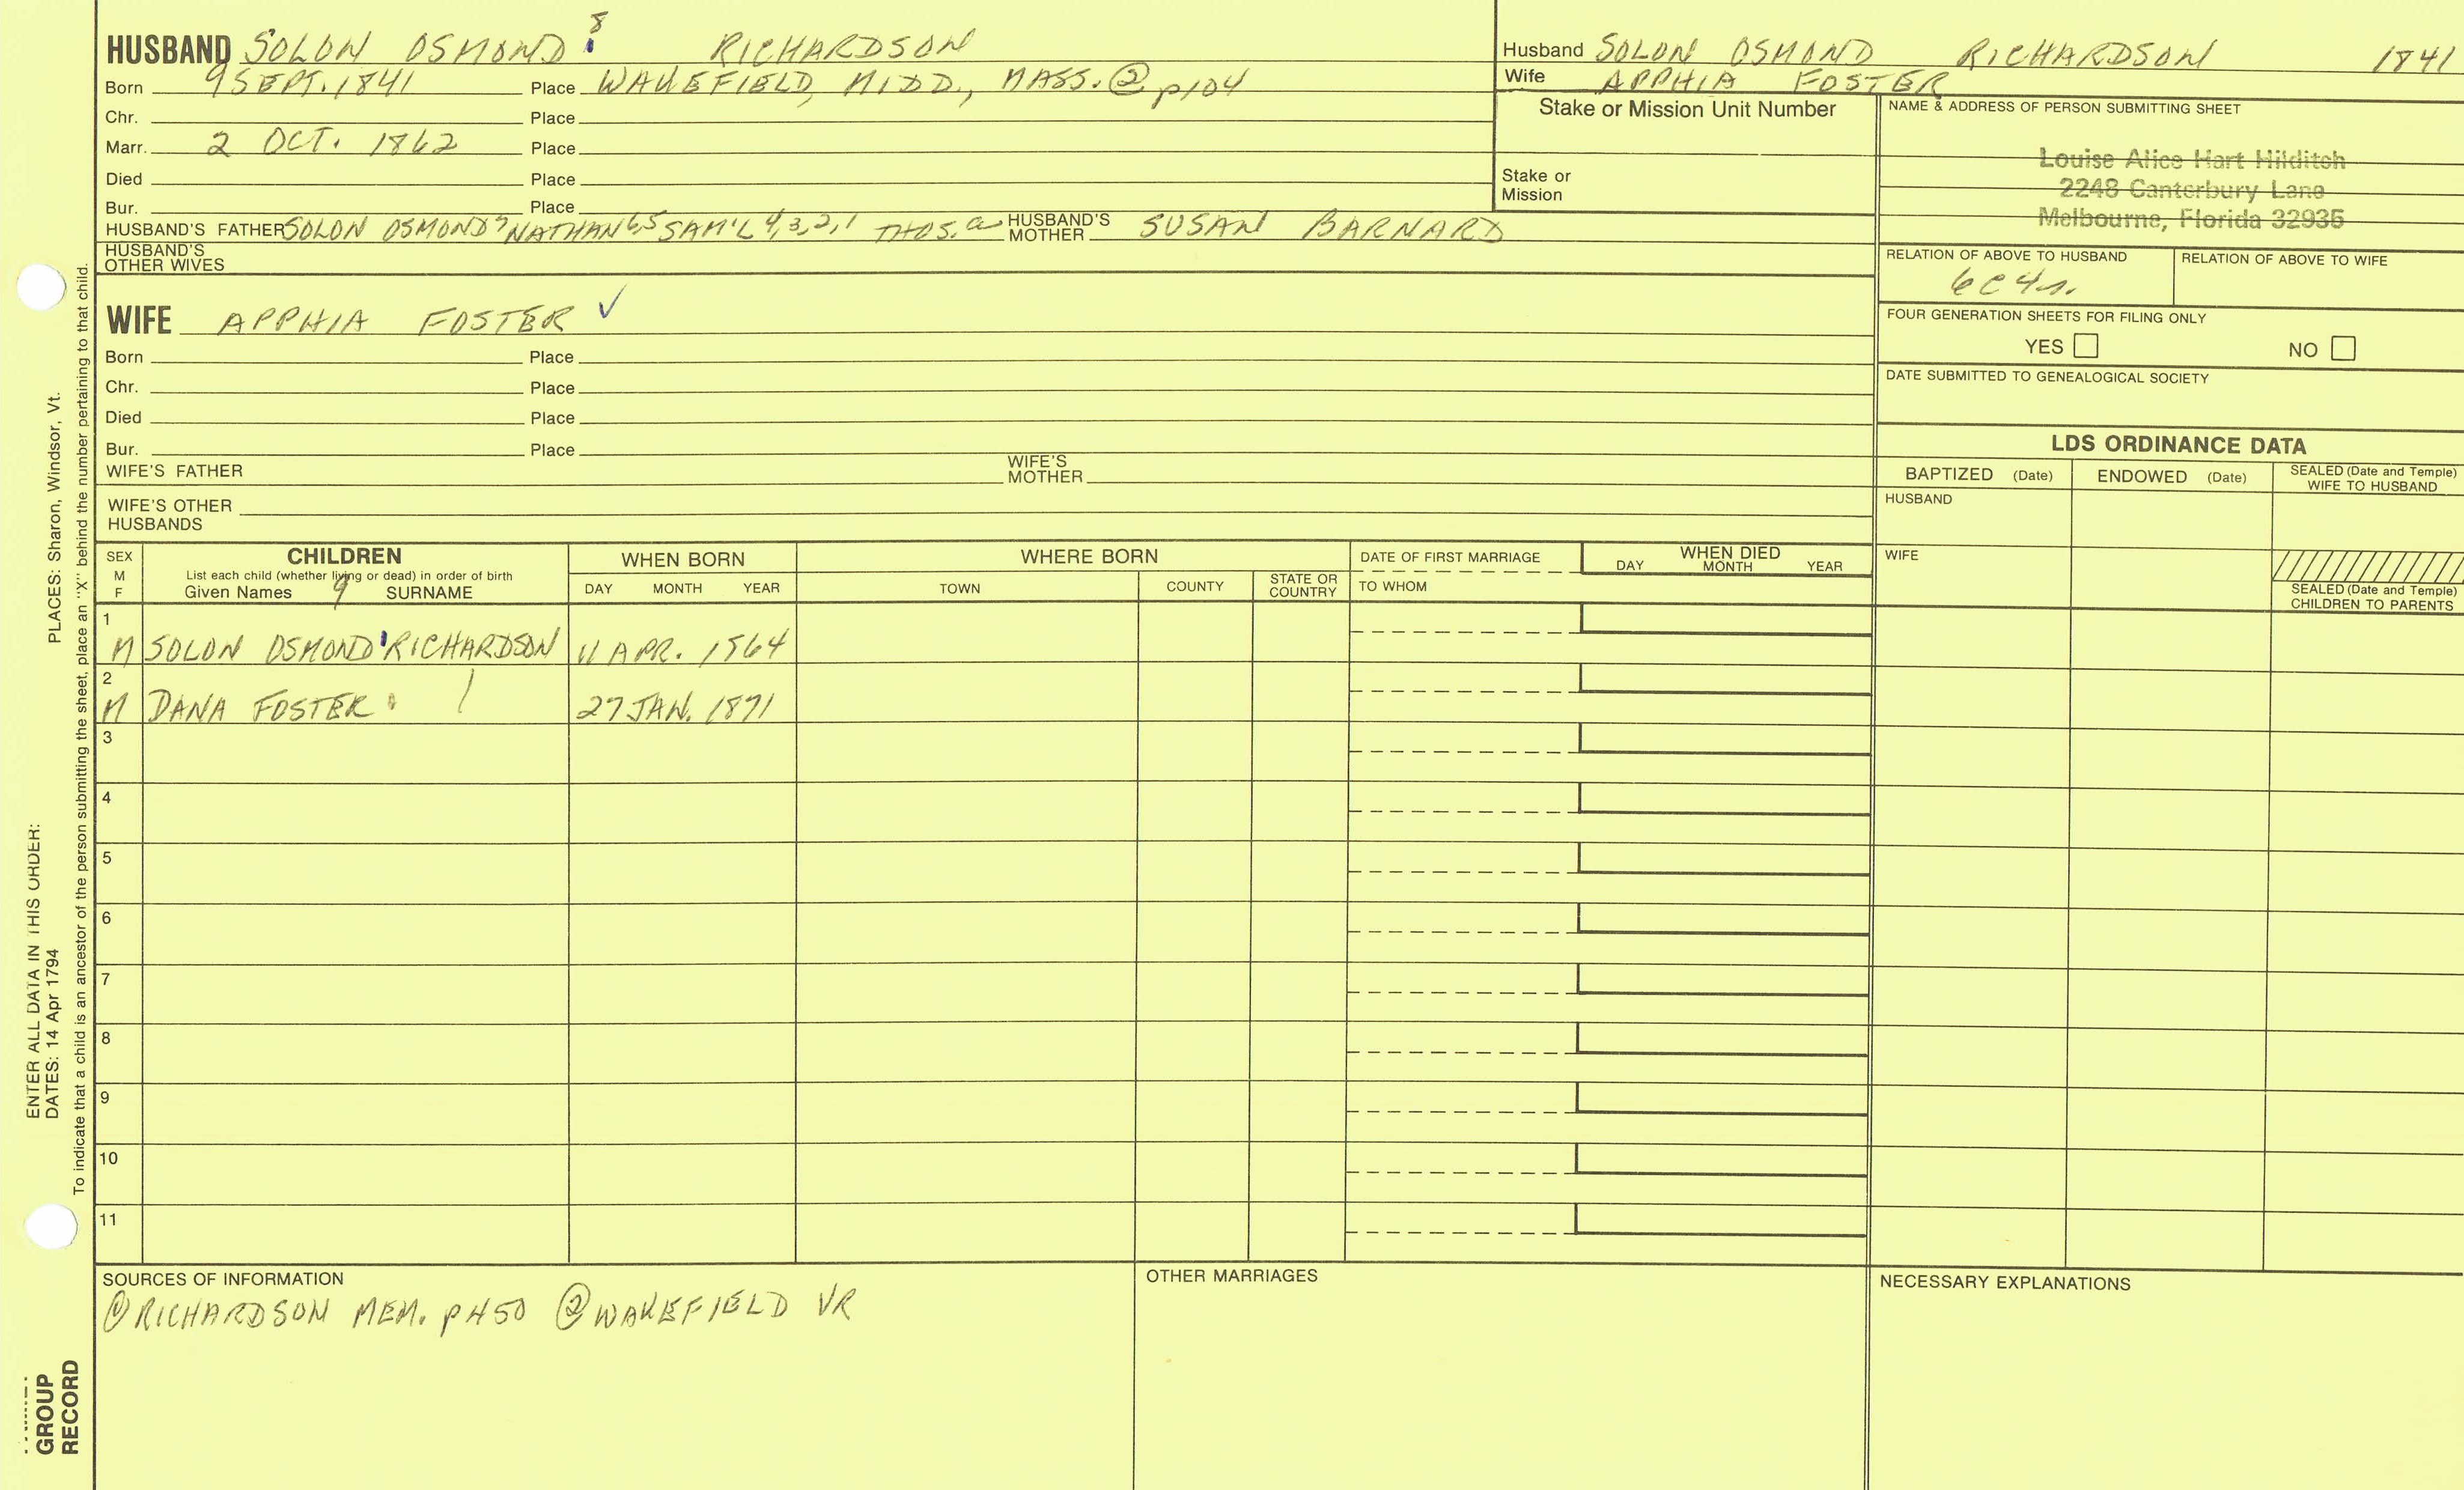 HUSBAND SOLON OSMOND 8 RICHARDSON
Born 9 SEPT. 1841 Place WAKEFIELD, MIDD., MASS. ② p104
Chr. Place
Marr. 2 OCT. 1862 Place
Died Place
Bur. Place
HUSBAND'S FATHER SOLON OSMOND 7 NATHAN 6,5 SAM'L 4,3,2,1 THOS. a HUSBAND'S MOTHER SUSAN BARNARD
HUSBAND'S OTHER WIVES
WIFE APPHIA FOSTER ✓
Born Place
Chr. Place
Died Place
Bur. Place
WIFE'S FATHER WIFE'S MOTHER
WIFE'S OTHER HUSBANDS
Husband SOLON OSMOND RICHARDSON 1841
Wife APPHIA FOSTER
Stake or Mission Unit Number
Stake or Mission
NAME & ADDRESS OF PERSON SUBMITTING SHEET
Louise Alice Hart Hilditch
2248 Canterbury Lane
Melbourne, Florida 32935
RELATION OF ABOVE TO HUSBAND RELATION OF ABOVE TO WIFE
6C4r.
FOUR GENERATION SHEETS FOR FILING ONLY
YES NO
DATE SUBMITTED TO GENEALOGICAL SOCIETY
LDS ORDINANCE DATA
BAPTIZED (Date) ENDOWED (Date) SEALED (Date and Temple) WIFE TO HUSBAND
HUSBAND
WIFE
SEALED (Date and Temple) CHILDREN TO PARENTS
SEX M F
CHILDREN
List each child (whether living or dead) in order of birth
Given Names 9 SURNAME
WHEN BORN
DAY MONTH YEAR
WHERE BORN
TOWN COUNTY STATE OR COUNTRY
DATE OF FIRST MARRIAGE
TO WHOM
WHEN DIED
DAY MONTH YEAR
1
M SOLON OSMOND RICHARDSON 11 APR. 1864
2
M DANA FOSTER 27 JAN. 1871
3
4
5
6
7
8
9
10
11
SOURCES OF INFORMATION
① RICHARDSON MEM. p450 ② WAKEFIELD VR
OTHER MARRIAGES
NECESSARY EXPLANATIONS
PLACES: Sharon, Windsor, Vt.
ENTER ALL DATA IN THIS ORDER:
DATES: 14 Apr 1794
To indicate that a child is an ancestor of the person submitting the sheet, place an "X" behind the number pertaining to that child.
GROUP
RECORD